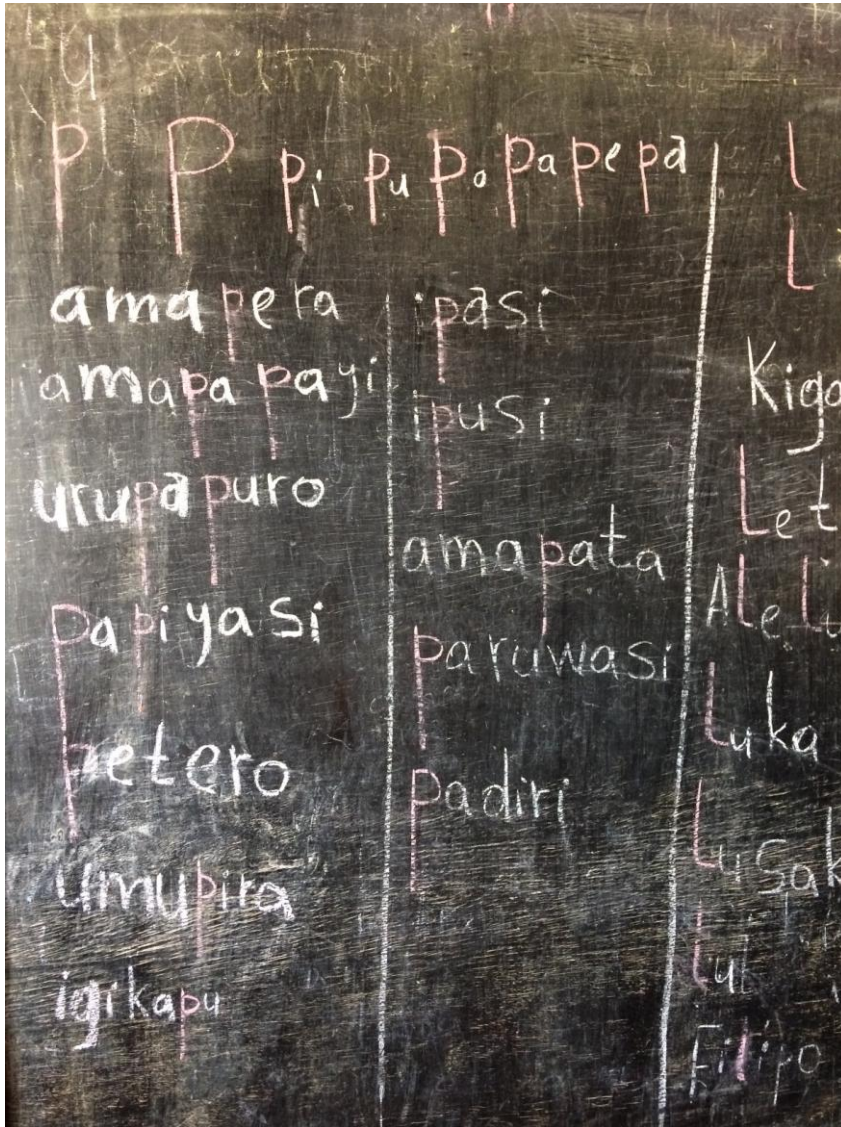 p P pi pu po pa pe pa
amapera
amapapayi
urupapuro
papiyasi
petero
umupira
igikapu
ipasi
ipusi
amapata
paruwasi
padiri
l
L
Kiga
Let
ALeLu
Luka
LuSak
Luk
Filipo